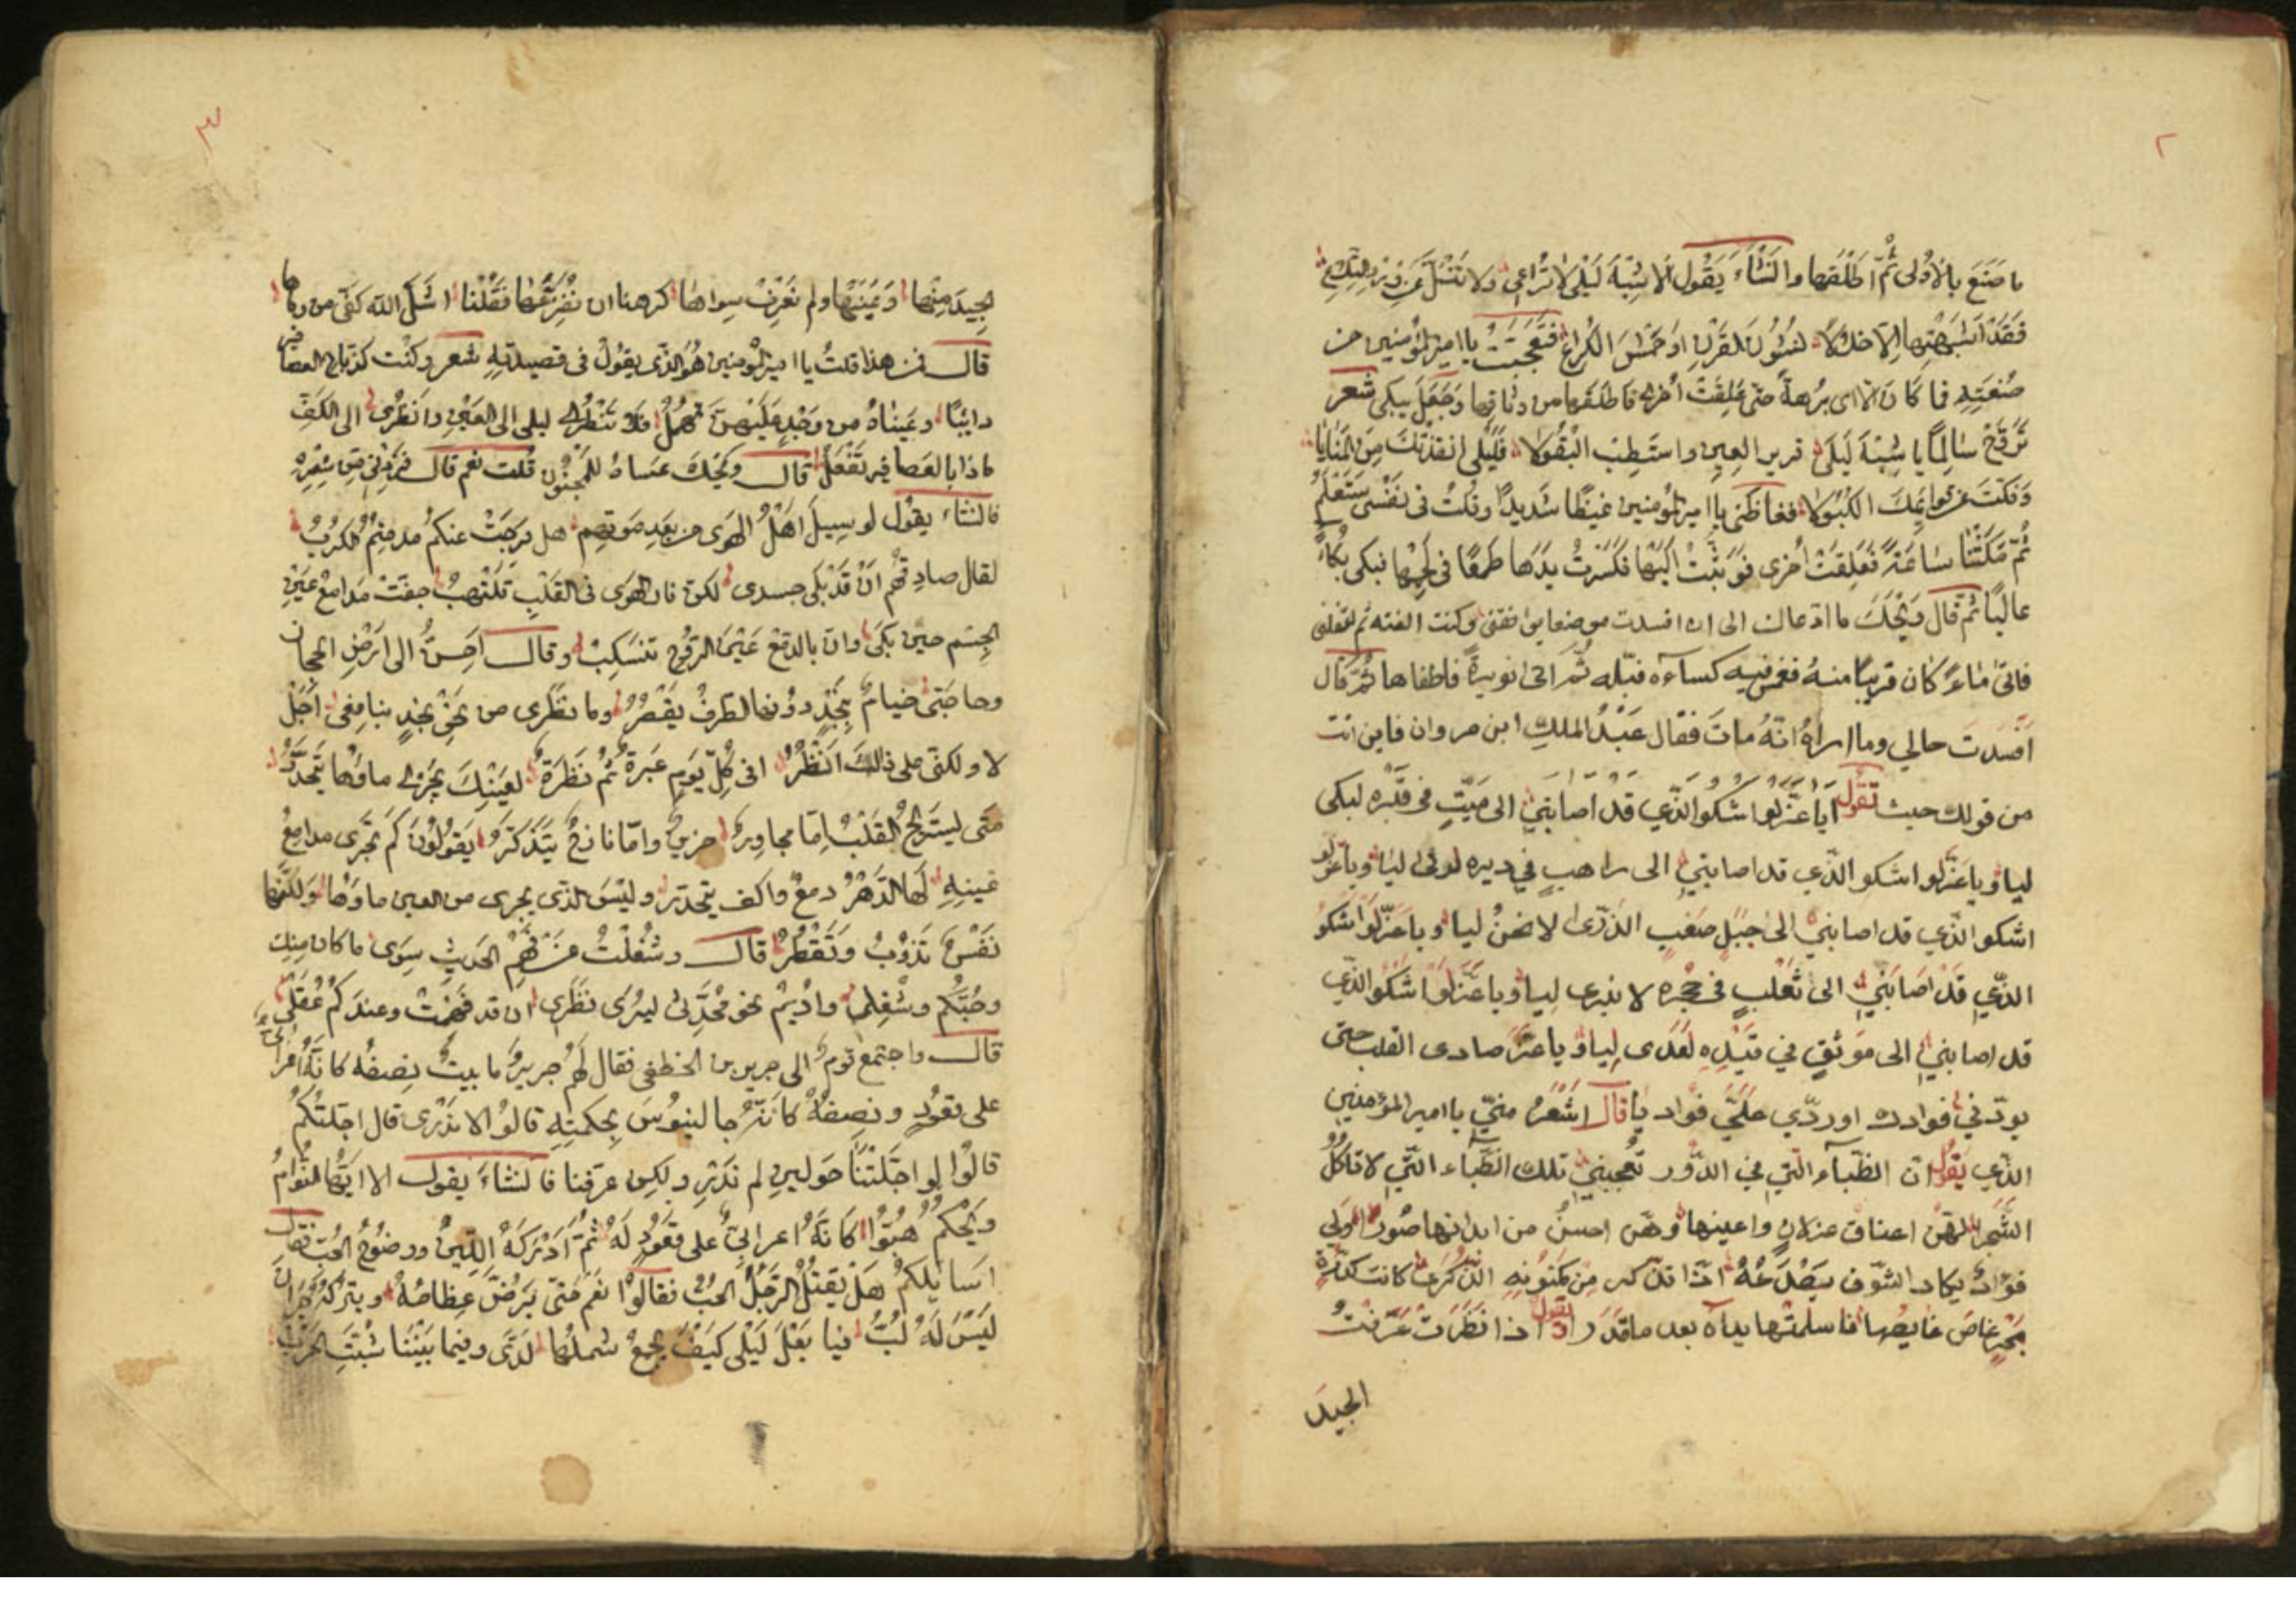 ٢
ما صَنَعَ بالأولى ثُمَّ اطلقها وانشاءَ يَقُول الا شبْهَ لَيْلى لا تُراعي ولا
فَقَدْ اشبهتها الا خلالًا نشوز القرن او حَمْشَ الكراع فتعجبت يا امير المؤمنين من
صُنعَتِهِ فما كان الا اى بُرهة حتى عَلِقَتْ اخرى فاطلقها من وثاقها وَجَعَلَ يبكى شعر
تَرَوَّحْ سالِمًا يا شِبْهَ لَيلَى قرير العينِ واستَطِب البُقُولا فَلَيْلى انقذتكَ مِنَ المَنايا
وَفَكَّتَ عن قوائِمكَ الكُبُولا فغاظنى يا امير المؤمنين غيظًا شديدًا وقلتُ فى نَفْسى سَتَعْلَمُ
ثُمَّ مَكَثْنا ساعَةً فَعَلِقَتْ اُخرى فَوَثَبْتُ اِلَيْها فكَسَرْتُ يَدَها طَمَعًا فى لَحْمِها فبكى بُكاءً
عاليًا ثم قال وَيْحَكَ ما ادعاك الى ان افسدت وكنت الفته ثم
فاتى ماءً كان قريبًا منهُ فغمس فيه كساءه فبّله ثُمَّ اتى نويرةً فاطفاها ثُمَّ قال
اَفْسَدتَ حالي وما اراهُ انهُ ماتَ فقال عَبْدُ الملكِ ابن مروان فاين انت
من قولك حيث تقول اَيا عَزَّ لَو اشكُو الَّذي قَدْ اَصابَنِي الى مَيِّتٍ فى قَبْرِه لبكى
ليا ويا عَزَّ لو اشكو الَّذي قد اصابني الى راهبٍ في ديره لرثى ليا ويا عَزَّ لو
اشكو الذي قد اصابني الى جَبَلٍ صَعْبِ الذُّرَى لانحنُ ليا ويا عَزَّ لَو اشكُو
الذّي قَدْ اصَابَنِي الى ثَعْلَبٍ في جُحْرِه لانبرى ليا ويا عَزَّ لَو اشكُو الذّي
قد اصابني الى موثَقٍ في قَيْدِهِ لَعَدى لِيا ويا عَزَّ صادى القلب حتى
يودّني فوادك او ردّي عَلَيَّ فوَاديا قال اشعَرُ منيّ يا امير المؤمنين
الذّي يَقُول ان الظّباءَ التي في الدُّور تعجبني تلك الظّباء التّي لا تاكل
الشجرا لهنّ اعناق غزلانٍ واعينها وَهنّ احسنُ من ابدانها صُورًا وَلى
فؤادٌ يكاد الشّوق يَصْدَعُهُ اذا تذّكر مِن مكنونِهِ الذّكَرا كانت كدُرّةِ
بَحْرٍ غاصَ غايصُها فاسلمتها يداه بعد ما قَدَرَا يقول اذا نَظَرَت عَرَفتُ
الجيدَ
٣
الجِيدَ مِنْها وَعَيْنَيْها ولم نَعْرِفْ سِواها كرهنا ان نُفَزِّعَها فقلْنا اشلّ الله كفّى من رماها
قال فمن هذا قلتُ يا امير المؤمنين هُوَ الذّى يقولُ فى قصيدته شعر وكنْت كذبّاح العصافير
دايبًا وعَيناهُ من وَجْدٍ عَلَيْهِنَّ تهْمُلُ فلا تَنْظُرى ليلى الى العَيْنِ وانْظُرى الى الكَفِّ
ماذا بالعَصافير تَفْعَلُ قال وَيْحَكَ عساهُ للمجنُون قُلت نعم قال فَزِدْني مِن شِعْرِهِ
فانشاء يقُول لو سِيلَ اهْلُ الهَوَى من بعدِ موتهم هل فرجَتْ عنكم مذ متمُ الكُرَبُ
لقال صادِقهُم اَنْ قَدْ بكى جسدى لكن نار الهوى فى القَلْبِ تَلْتَهِبُ جفّتْ مَدامعُ عَيْنِ
الجِسم حين بكَى وان بالدمع عَيْنَ الرّوح تنسَكِبُ وقال اَحِنُّ الى ارْضِ الحجاز
وحاجَتى خيامٌ بِنَجْدٍ دونها الطرفُ يقْصُرُ وما نظَرى من نَحْو نجدٍ بنافعى اَجَلْ
لا ولكنّى على ذلِكَ اَنْظُرُ افى كُلِّ يَومٍ عَبرةٌ ثُمَّ نَظرَةٌ لعَيْنِكَ يجرى ماؤها يَتَحَدَّرُ
مَتى يستريحُ القَلْبُ اِمّا مجاوِرٌ حزينٌ وامّا نازحٌ يتَذَكّرُ يقولُونَ كَمْ تجْرى مدامعُ
عَينِهِ لَها الدَّهْرُ دمعٌ واكف يتحدّر وليْسَ الذى يجرى من العين ماؤها وَلكنّها
نَفْسٌ تَذوْبُ وتَقْطُرُ قال وشُغِلْتُ عن فَهْمِ الحديثِ سِوَى ما كان منكِ
وحُبُّكُم وشُغلى واُديمُ نحوَ مُحَدِّثى ليرَى نظَرى ان قد فَهِمْتُ وعندَكُم عَقْلى
قال واجتمعَ قومٌ الى جرير بن الخطفى فقال لَهُم جريرٌ ما بيتٌ نِصفُه كانّهُ اعرابى
على قعُودٍ ونصفُهُ كانّهُ جالينوسَ بحكمتِهِ قالوا لا نَدْرى قال اجّلتُكُمْ
قالُوا لو اجّلتَنا حَولينِ لم نَدْرِ ولكِن عرّفنا فانشاءَ يقول الا ايّها النُّوامُ
وَيْحَكُمُ هُبُّوا كَانَهُ اعرابىٌّ على قعُودٍ لَهُ ثمّ ادْرَكهُ اللّينُ ووضُوحُ الحُبِّ فقال
اسايلكُمْ هَلْ يَقتُلُ الرّجُلَ الحُبُّ فقالُوا نعَم حَتّى يَرُضَّ عِظامَهُ ويترُكَهُ حَيْرانَ
لَيْسَ لَهُ لُبُّ فيا بَعْلَ لَيْلى كَيْفَ يجمعُ شملُها لَدَىّ وفيما بيْنَنا شُبّتَ الحرْبُ